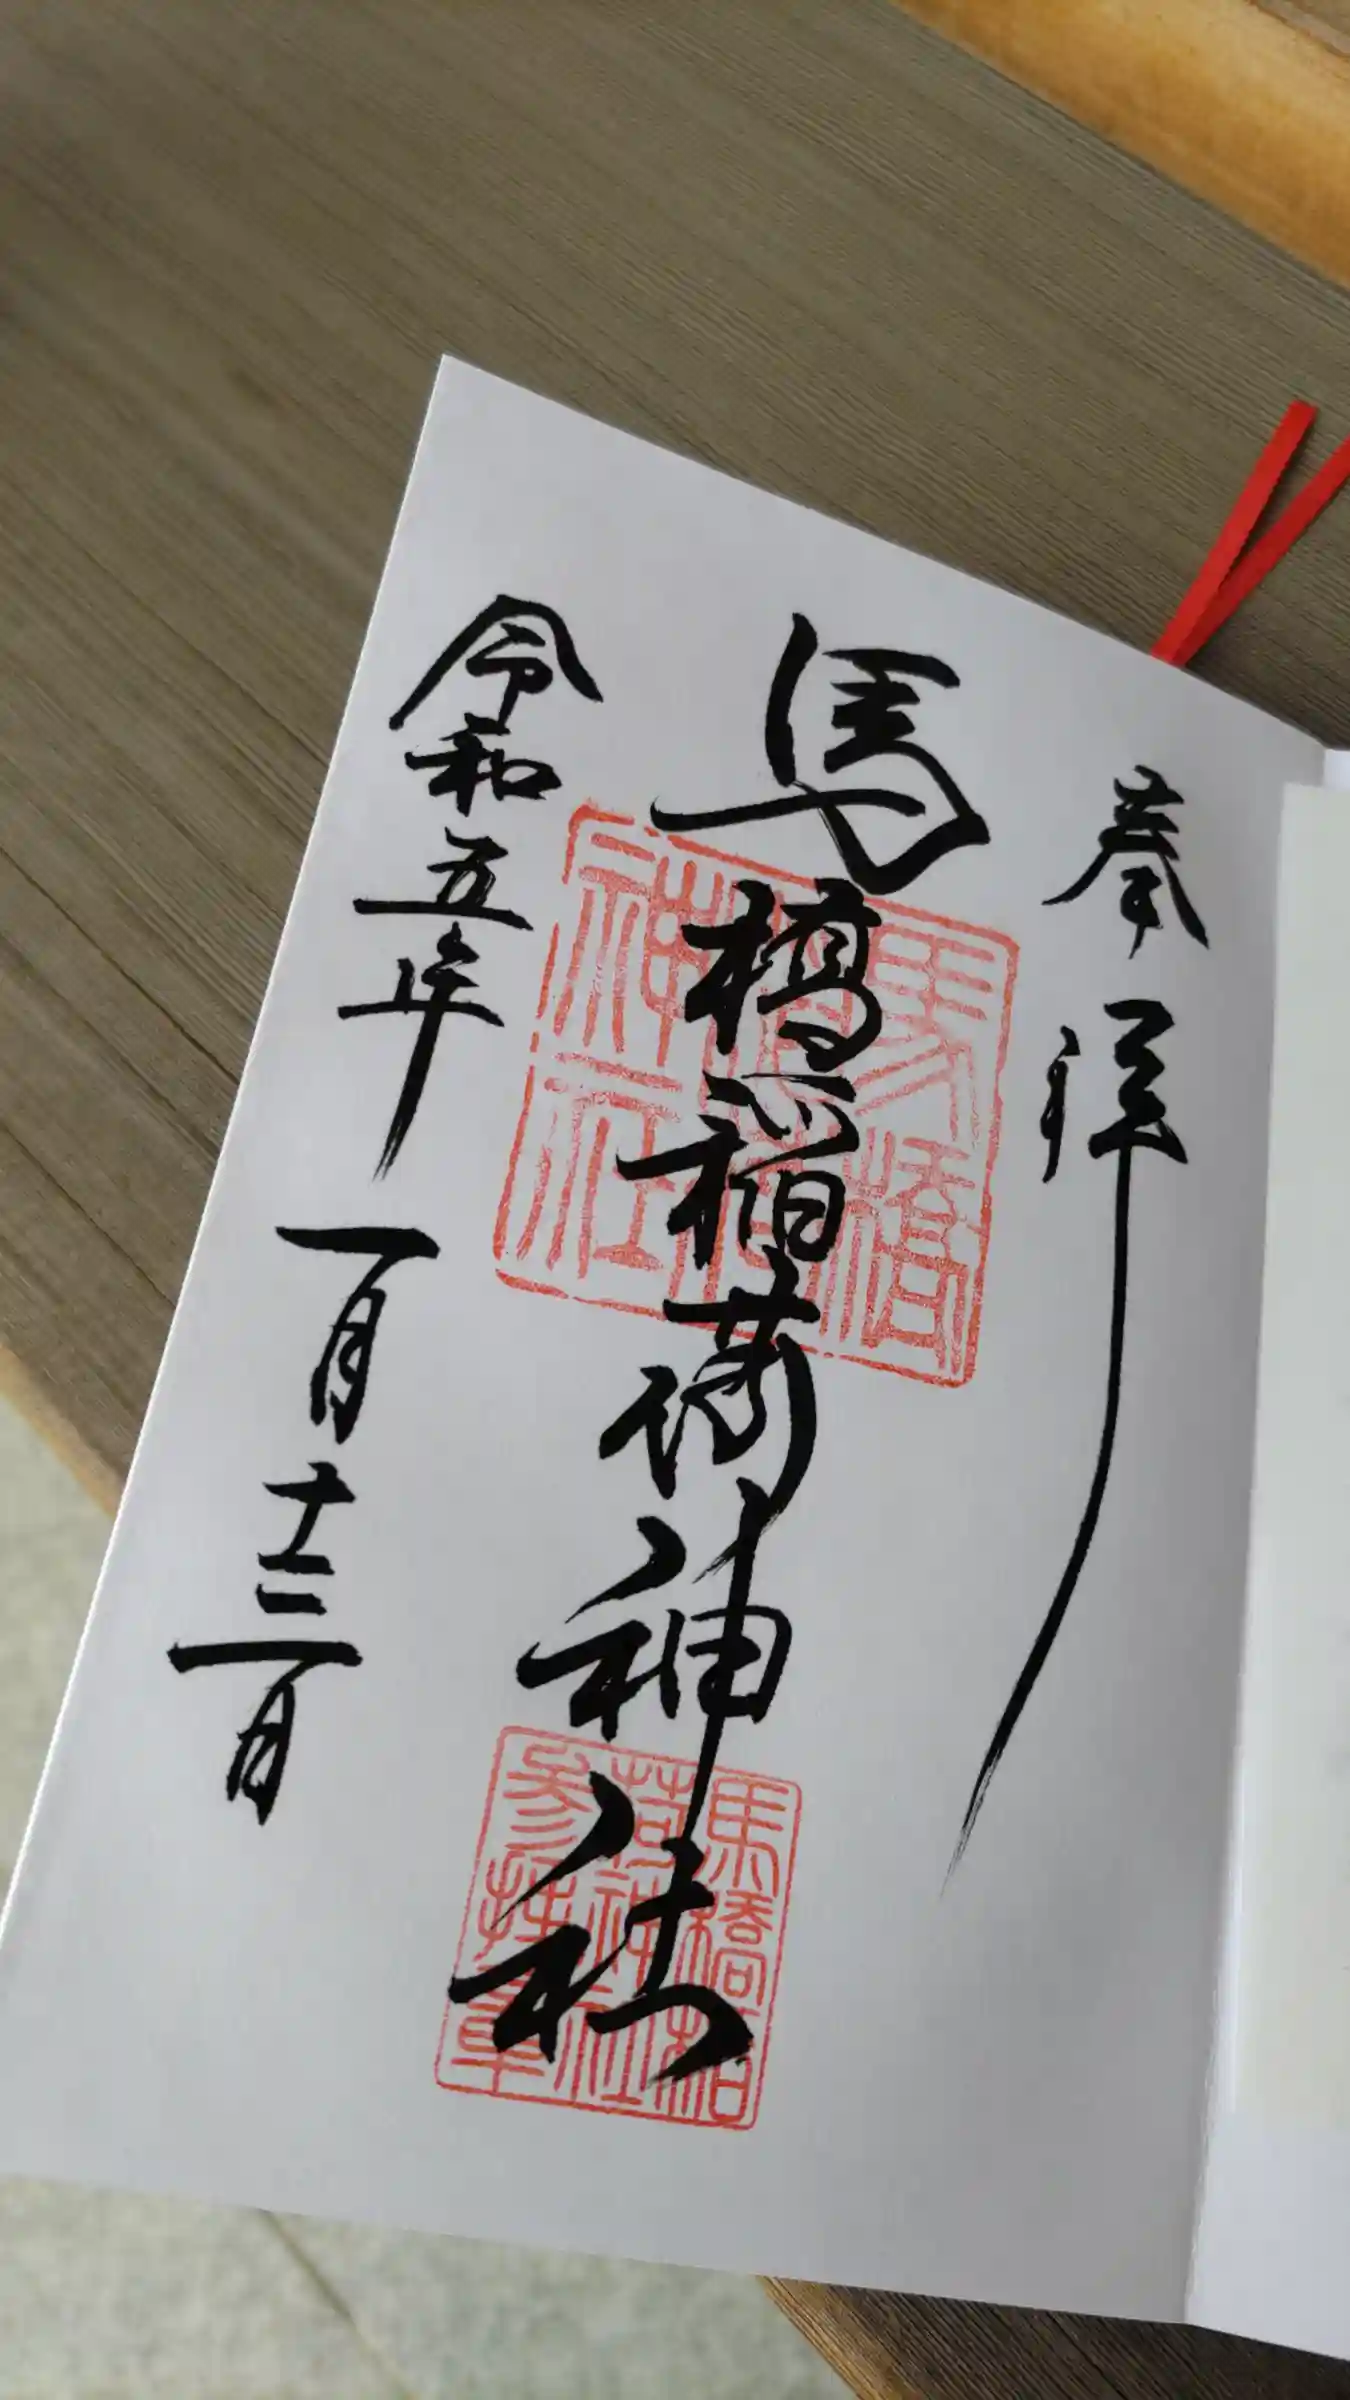 奉拝
馬橋稲荷神社
令和五年一月十三日
馬橋
稲荷
神社
馬橋稲
荷神社
参拝章